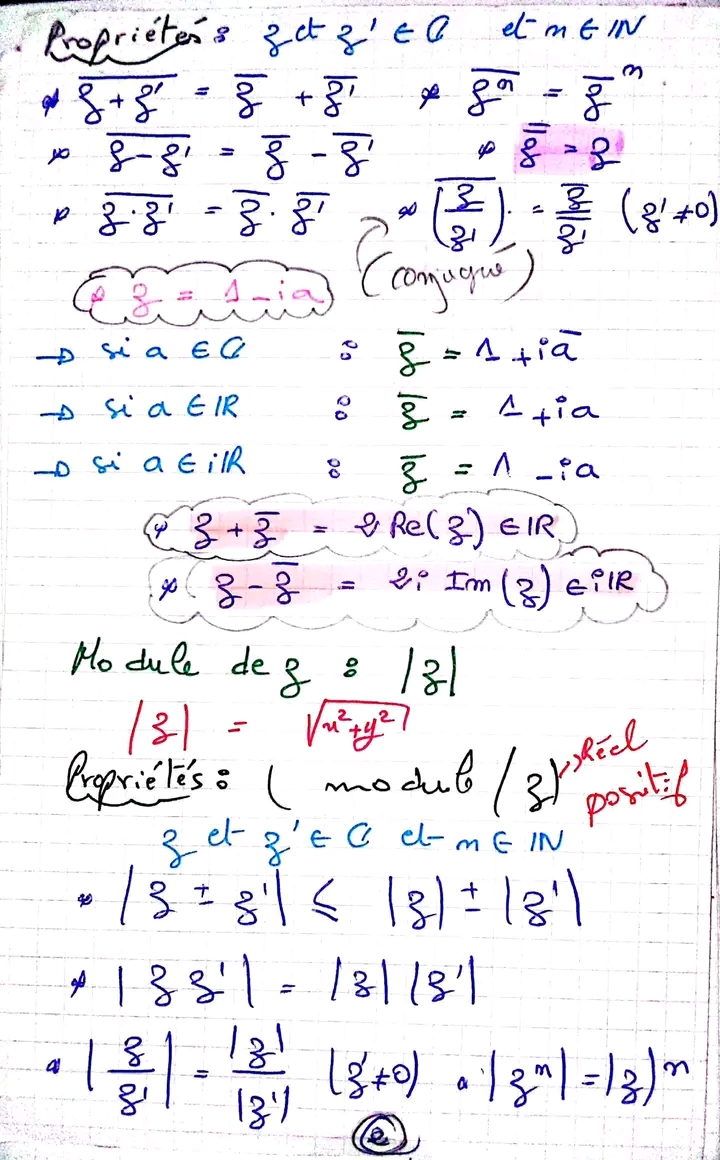 Propriétés : z et z' ∈ ℂ et n ∈ ℕ
* \overline{z+z'} = \overline{z} + \overline{z'} * \overline{z^n} = \overline{z}^n
* \overline{z-z'} = \overline{z} - \overline{z'} * \overline{\overline{z}} = z
* \overline{z.z'} = \overline{z}.\overline{z'} * \overline{(z/z')} = \overline{z}/\overline{z'} (z'≠0)
(conjugué)
* z = 1-ia
→ si a ∈ ℂ : \overline{z} = 1+i\overline{a}
→ si a ∈ IR : \overline{z} = 1+ia
→ si a ∈ iIR : \overline{z} = 1-ia
* z+\overline{z} = 2 Re(z) ∈ IR
* z-\overline{z} = 2i Im(z) ∈ iIR
Module de z : |z|
|z| = √(x²+y²)
Propriétés : ( modul |z| → Réel positif
z et z' ∈ ℂ et n ∈ IN
* |z ± z'| ≤ |z| ± |z'|
* |z z'| = |z| |z'|
* |z/z'| = |z|/|z'| (z'≠0) * |z^n| = |z|^n
2